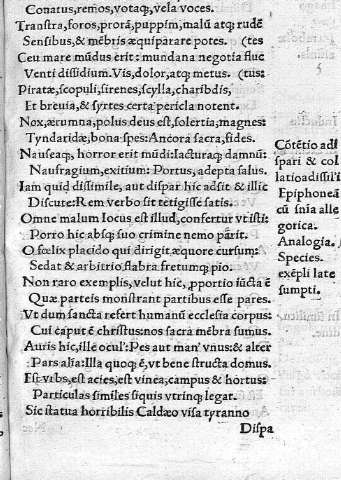 Conatus, remos, votaq́;, vela voces.
Transtra, foros, prorã, puppim, malũ atq́; rudẽ
Sensibus, & mẽbris æquiparare potes. (tes
Ceu mare mũdus erit: mundana negotia fluc
Venti dissidium. Vis, dolor, atq́; metus. (tus:
Piratæ, scopuli, sirenes, scylla, charibdis,
Et breuia, & syrtes certa pericla notent.
Nox, ærumna, polus deus est, solertia, magnes:
Tyndaridæ, bona spes: Ancora sacra, fides.
Nauseaq́;, horror erit mũdi: Iacturaq́; damnũ:
Naufragium, exitium: Portus, adepta salus.
Iam quid dissimile, aut dispar hic adsit & illic
Discute: Rem verbo sit tetigisse satis.
Omne malum locus est illud, confertur vt isti:
Porro hic absq́; suo crimine nemo părit.
O fœlix placido qui dirigit, æquore cursum:
Sedat & arbitrio flabra fretumq́; pio.
Non raro exemplis, velut hic, ꝓportio iũcta ẽ
Quæ parteis monstrant partibus esse pares.
Vt dum sancta refert humanũ ecclesia corpus:
Cui caput ẽ christus: nos sacra mẽbra sumus.
Auris hic, ille ocul': Pes aut man' vnus: & alter
Pars alia: Illa quoq́; ẽ, vt bene structa domus.
Est vrbs, est acies, est vinea, campus & hortus:
Particulas similes siquis vtrinq́; legat.
Sic statua horribilis Caldæo visa tyranno
Dispa
Cõtẽtio adi
spari & col
latio a dissi̇li
Epiphonea
cũ snia alle
gorica.
Analogia.
Species.
exẽpli late
sumpti.